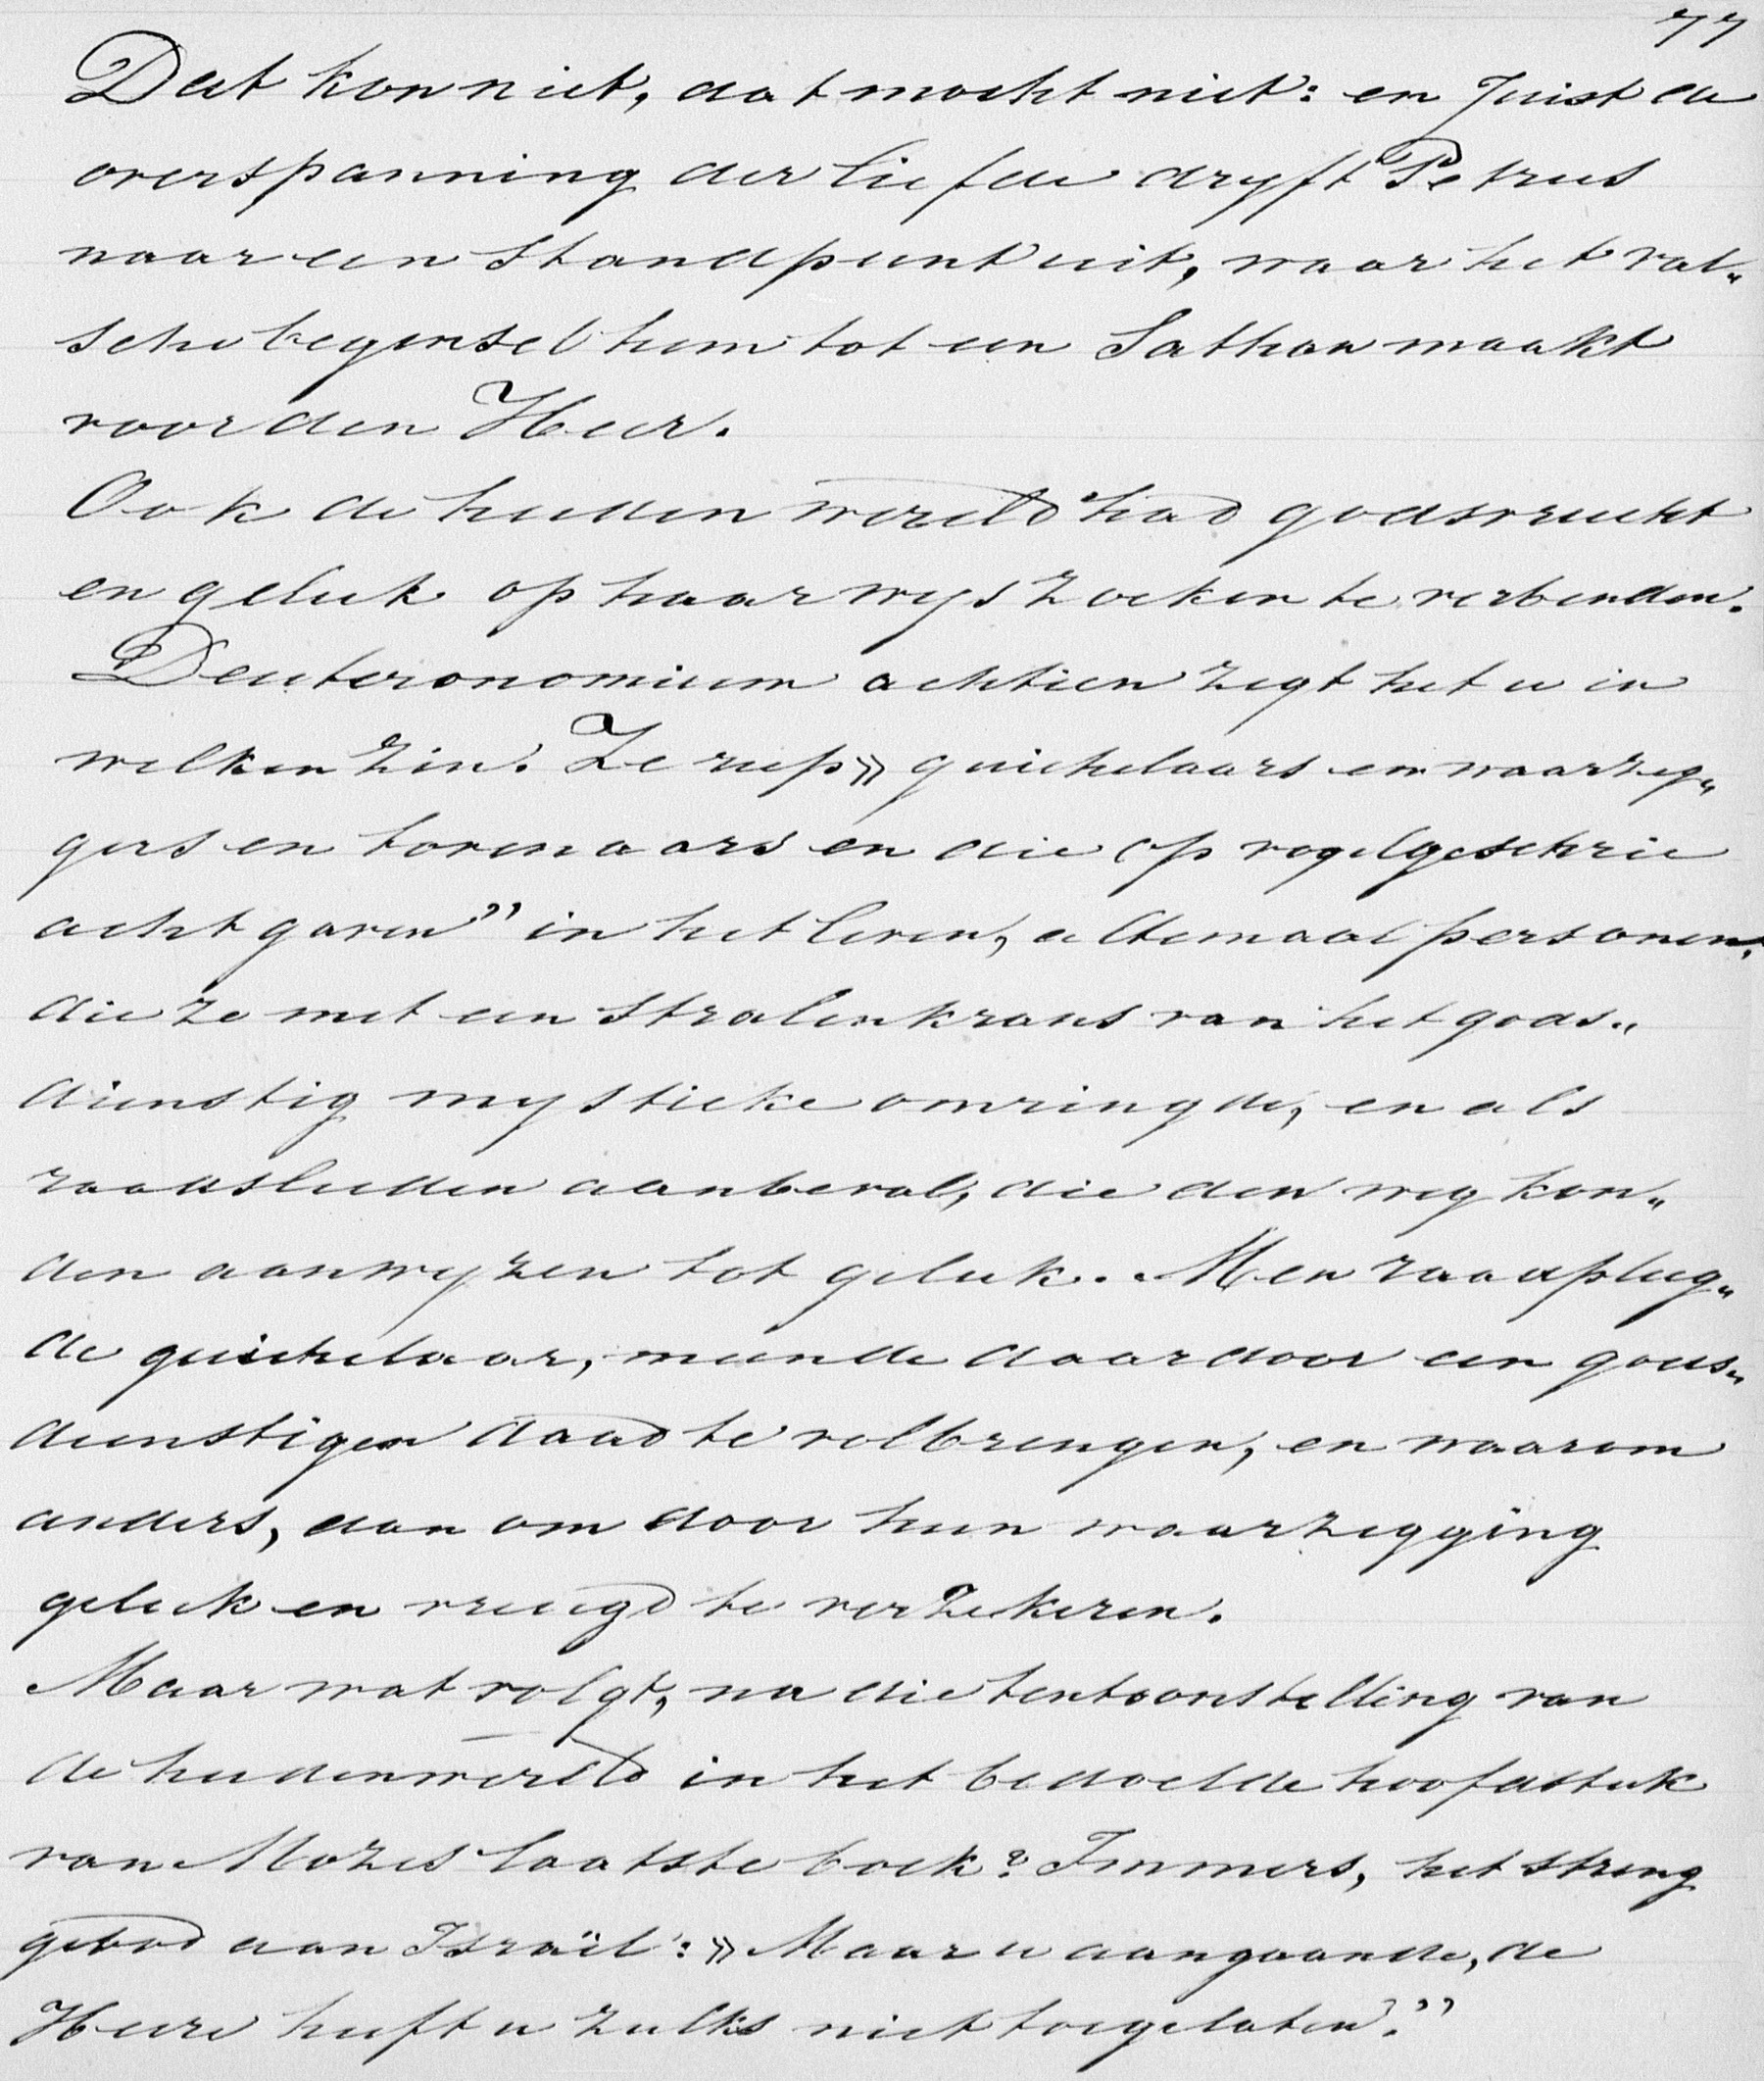 77
Dat kon niet, dat mocht niet: en juist de
overspanning der liefde dryft Petrus
naar een standpunt uit, waar het val„
sche beginsel hem tot een Sathan maakt
voor den Heer.
Ook de heidenwereld had godsvrucht
en geluk op haar wijs zoeken te verbinden.
Deuteronomium achtien zegt het u in
welken zin. Ze riep » guichelaars en waarzeg„
gers en tovenaars en die op vogelgeschrie
acht gaven” in het leven, altemaal personen,
die ze met een stralenkrans van het gods„
dienstig mystieke omringde, en als
raadslieden aanbeval, die den weg kon„
den aanwyzen tot geluk. Men raadpleeg„
de guichelaar, meende daardoor een gods„
dienstigen daad te volbrengen, en waarom
anders, dan om door hun waarzegging
geluk en vreugd te verzekeren.
Maar wat volgt, na die tentoonstelling van
de heidenwereld in het bedoelde hoofdstuk
van Mozes laatste boek? Immers, het streng
gebod aan Israël: » Maar u aangaande, de
Heere heeft u zulks niet toegelaten.”